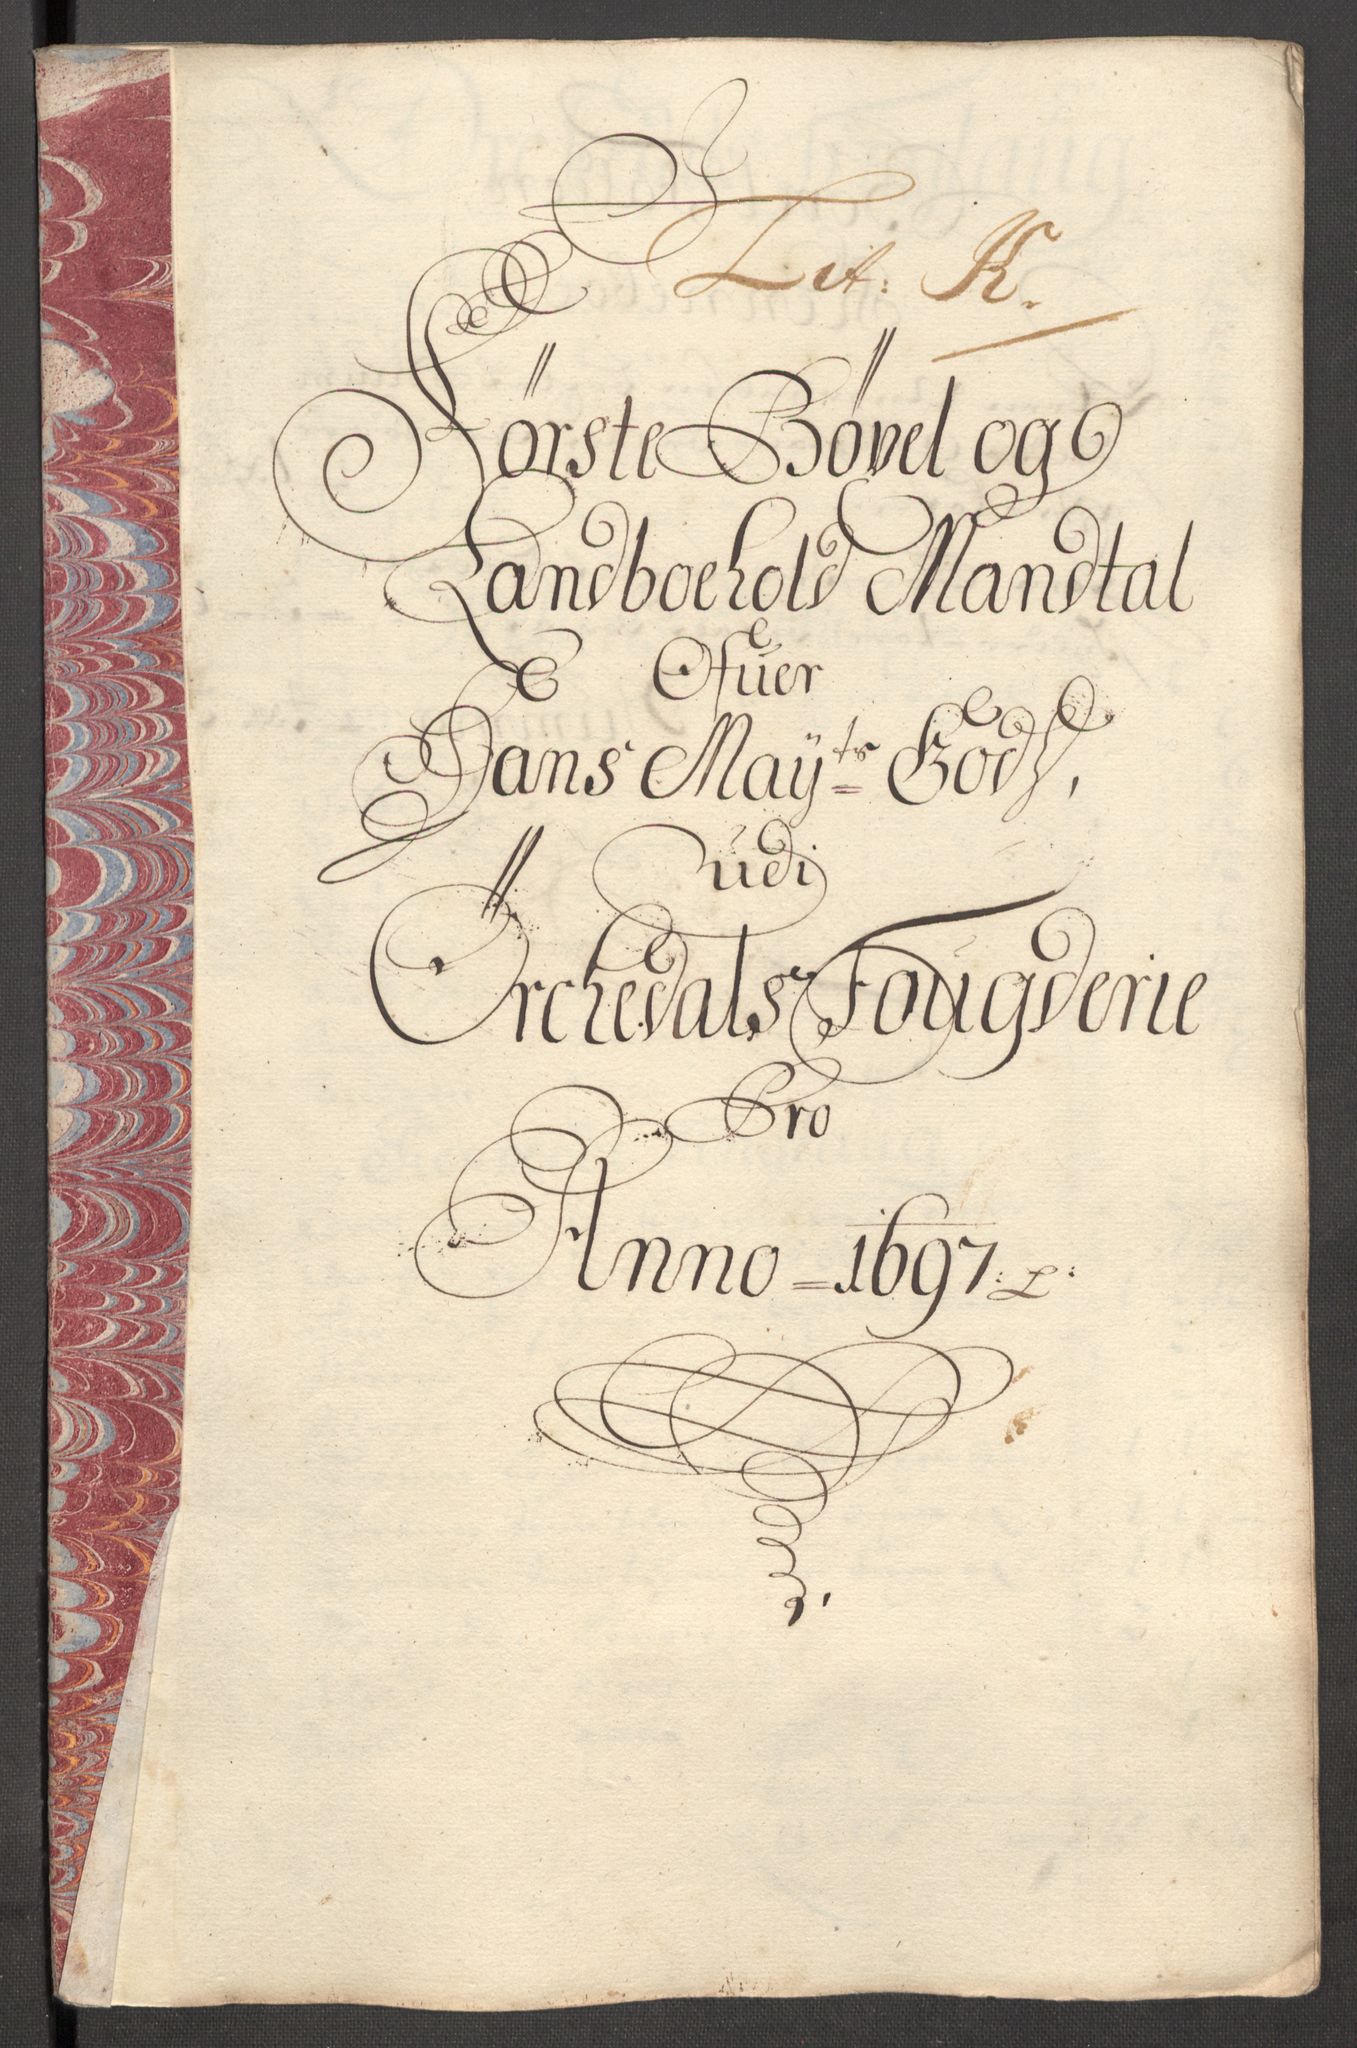 Lit: K.
Første Bøxel og
Landboehold Mandtal
Ofuer
Hans Maÿ:ts Godtz,
udi
Örchedals Fougderie
Pro
Anno = 1697: